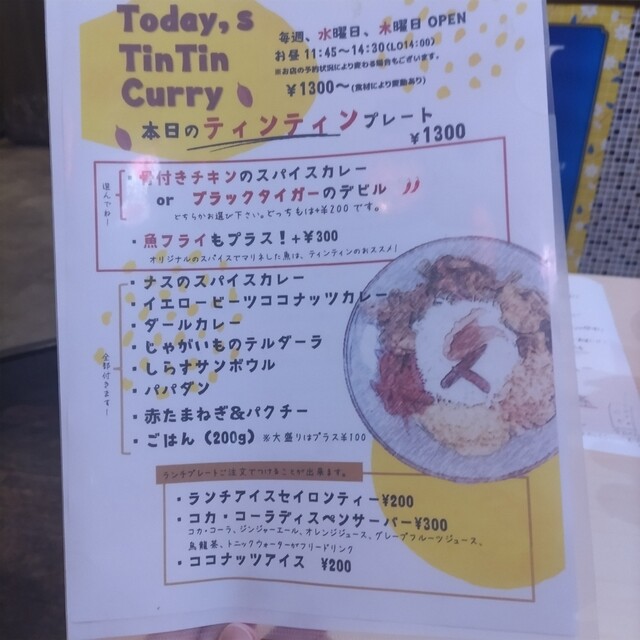 Today,s
TinTin
Curry
毎週、水曜日、木曜日 OPEN
お昼 11:45〜14:30(LO14:00)
※お店の予約状況により変わる場合もございます。
¥1300〜(食材により変動あり)
本日のティンティンプレート
¥1300
選んでね!
・骨付きチキンのスパイスカレー
or ブラックタイガーのデビル
どちらかお選び下さい。どっちもは+¥200です。
・魚フライもプラス!+¥300
オリジナルのスパイスでマリネした魚は、ティンティンのおススメ!
全部付きます!
・ナスのスパイスカレー
・イエロービーツココナッツカレー
・ダールカレー
・じゃがいものテルダーラ
・しらすサンボウル
・パパダン
・赤たまねぎ&パクチー
・ごはん(200g) ※大盛りはプラス¥100
ランチプレートご注文でつけることが出来ます。
・ランチアイスセイロンティー¥200
・コカ・コーラディスペンサーバー¥300
コカ・コーラ、ジンジャーエール、オレンジジュース、グレープフルーツジュース、
烏龍茶、トニックウォーターがフリードリンク
・ココナッツアイス ¥200